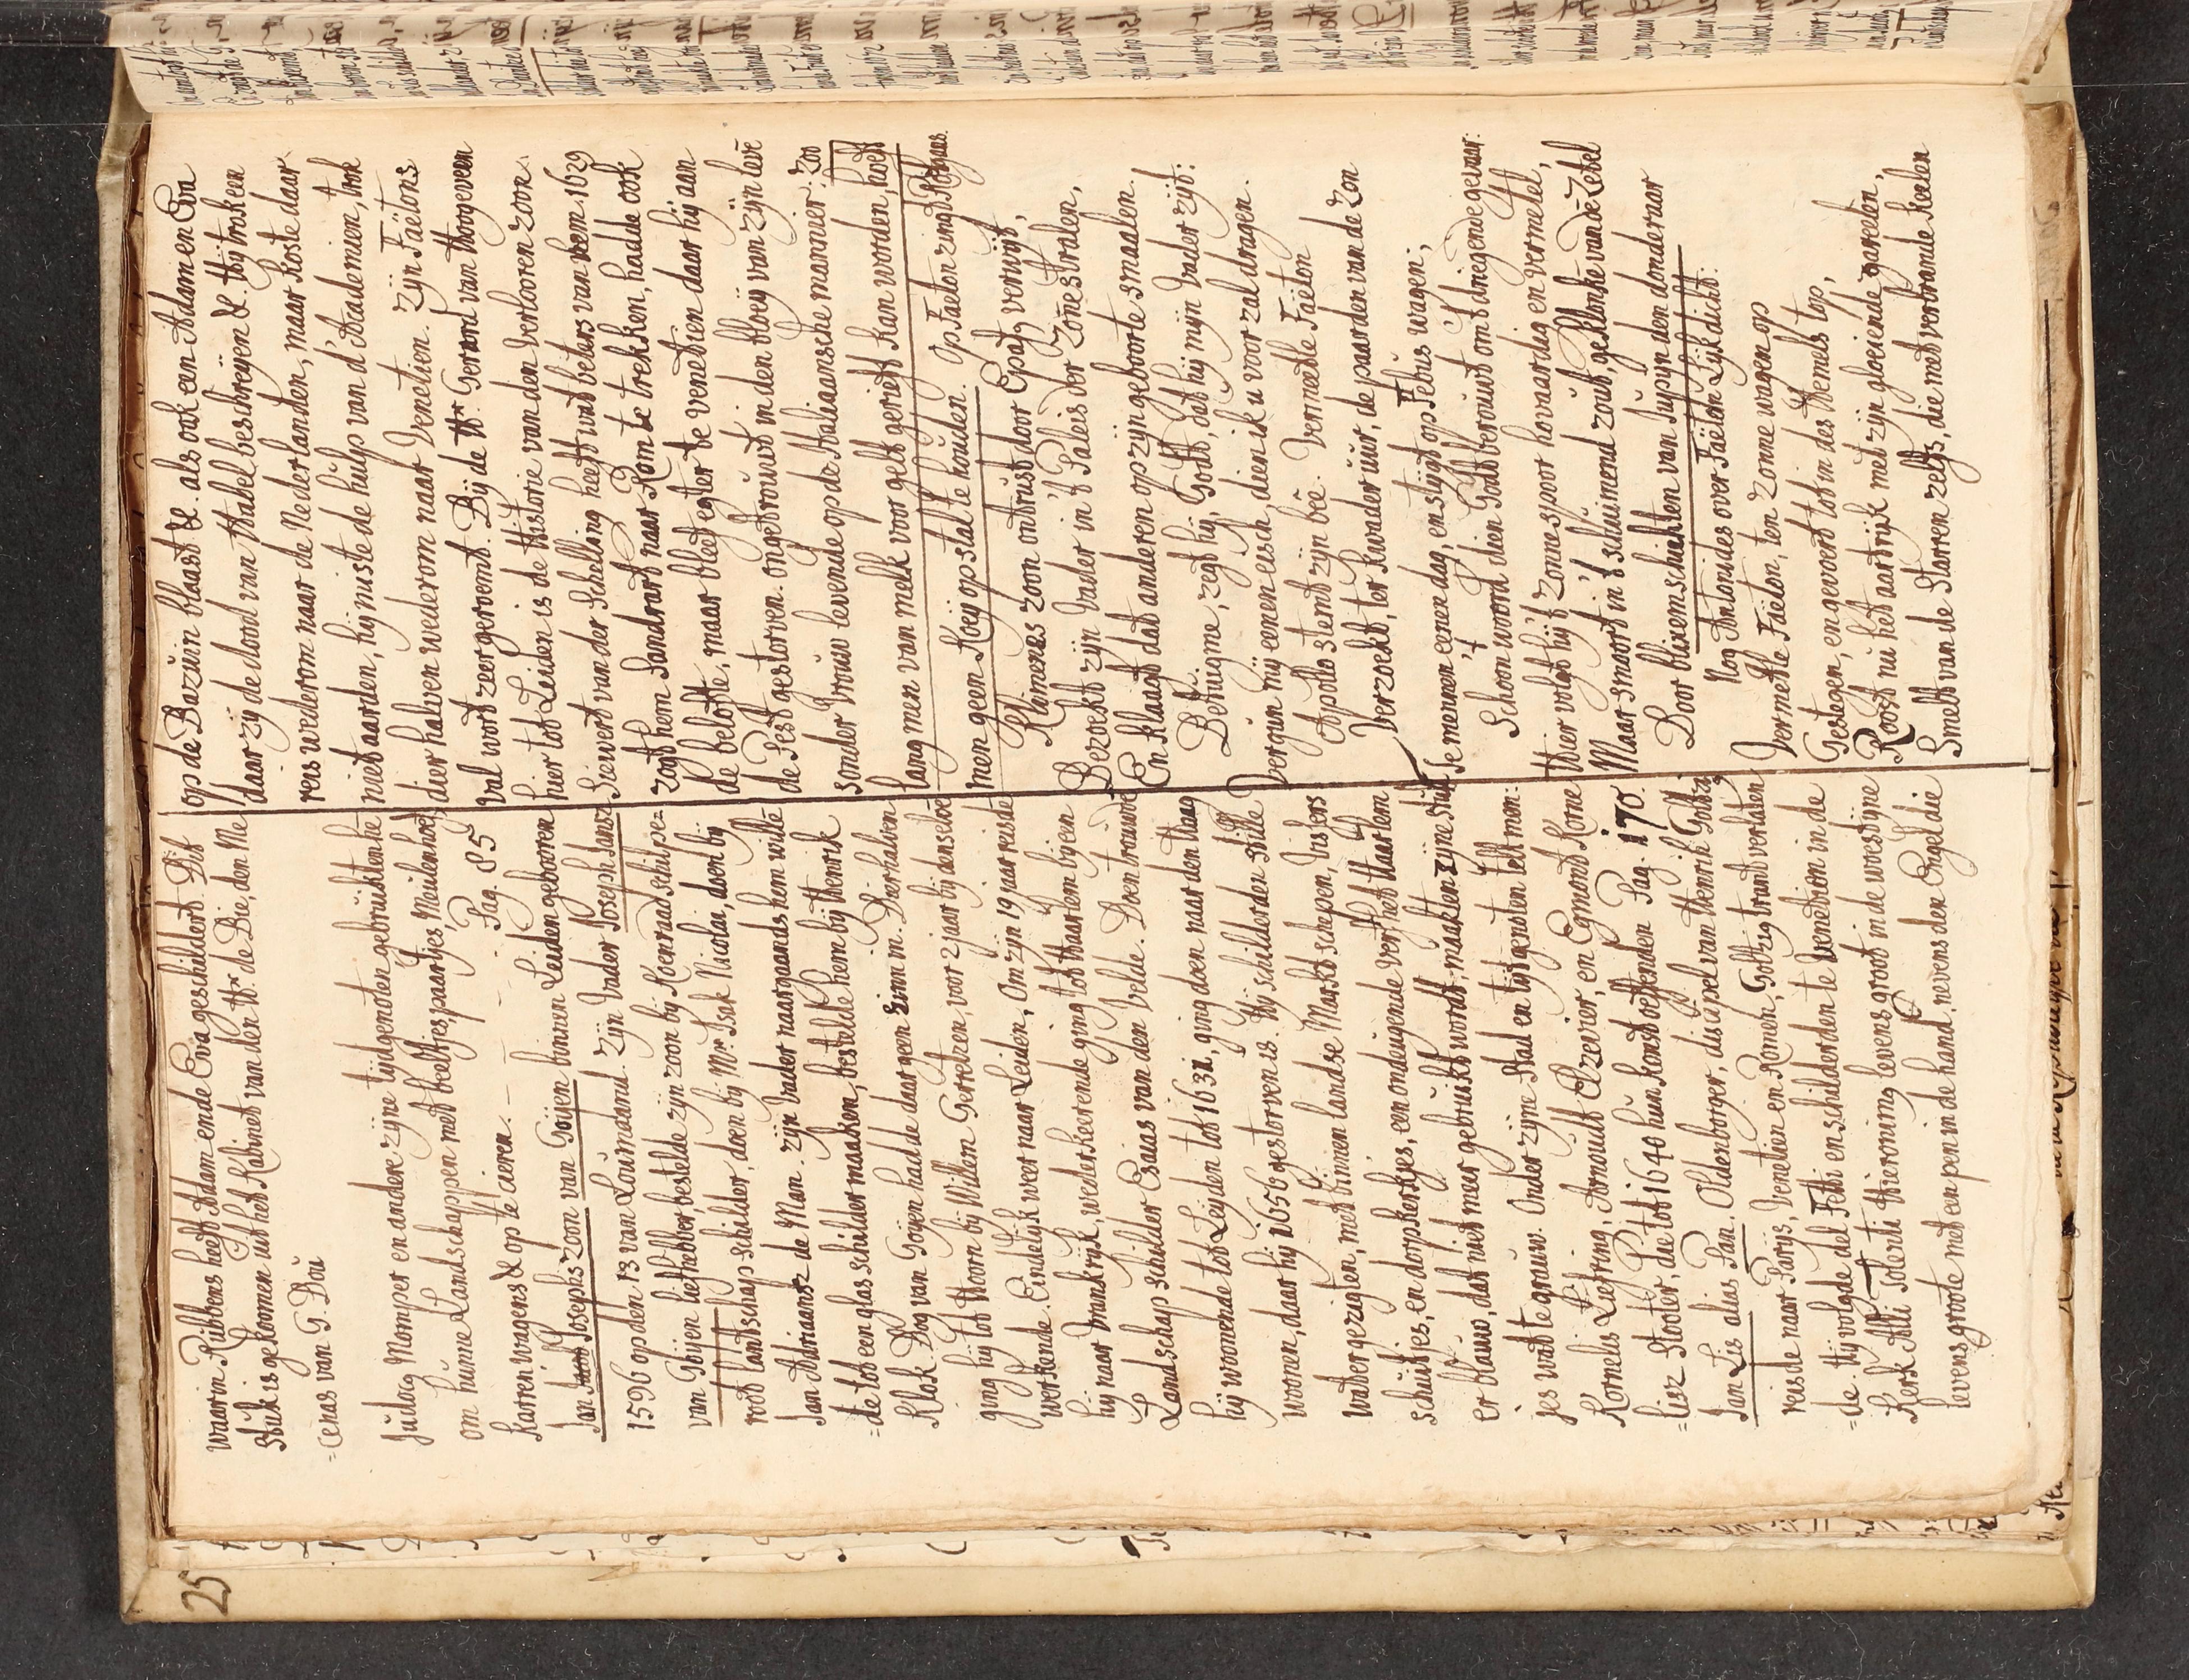 25
waarin Rübbens heeft Adam ende Eva geschildert Dit
Stuk is gekoomen uit het Kabinet van den Hr. de Bie, den Me
=cenas van G. Doü
Judocq Momper en andere zijne tijdgenoten gebrüikten he
om hünne Landschappen met beeltjes, paartjes, Meulenhoef
karren wagens &c op te cieren. — Pag. 85
Jan Josephs zoon van Goijen binnen Leiden gebooren
1596 op den 13 van Loümaand. zijn Vader Joseph Jansz
van Goijen liefhebber, bestelde zijn zoon bij Koenraad Schilpe=
root landschap schilder, doen bij Mr. Isak Nicolai, doen bij
Jan Adriaansz de Man. zijn Vader naargaands hem wille
=de tot een glasschilder maaken, bestelde hem bij Henrik
Klok. Dog van Goijen hadde daar geen zinn in. Derhalven
ging hij tot Hoorn bij Willem Gerretzen, voor 2 jaar bij denselve
werkende. Eindelijk weer naar Leiden, Om zijn 19 jaar reisde
hij naar Vrankrijk, wederkeerende ging tot Haarlem bij een
Landschap schilder Esaias van den Velde. Doen trouwde
hij woonende tot Leijden tot 1631, ging doen naar den Haag
woonen, daar hij 1656 gestorven is. Hij schilderden stille
watergezigten, met binnenlandse Marktschepen, Vissers
schüitjes, en dorpkerkjes, een ondeügende verf het Haarlem
er blaüw, dat niet meer gebrüikt wordt, maakten zijne Stük
jes wat te graüw. Onder zijne Stad en tijtgenoten telt men:
Kornelis Liefring, Arnouldt Elzevier, en Egmont Korne
=lisz Stooter, die tot 1640 hün konst oeffenden Pag. 170.
Jan Lis alias Pan. Oldenborger, discipel van Henrik Goltzi,
reisde naar Parijs, Venetien en Romen, Goltzig trant verlaten
=de. Hij volgde del Fetti en schilderden te Venetien in de
Kerk Alli Tolenti Hieronimq levens groot in de woestijne
levens groote met een pen in de hand, nevens den Engel die
op de Bazüin blaast &c. als ook een Adam en Eva
daar zij de dood van Habel beschreijen &c. Hij trok een
reis wederom naar de Nederlanden, maar koste daar
niet aarden, hij miste de hülp van d'Akademien, trok
dierhalven wederom naar Venetien. Zijn Faëtons
Val wort zeer geroemt. Bij de Hr. Gerard van Hoogeven
hier tot Leiden is de Historie van den verlooren zoon.
Sievert van der Schelling heeft wat beters van hem. 1629
zogt hem Sandrart naar Rom te trekken, hadde ook
de belofte, maar bleef egter te Venetien daar hij aan
de Pest gestorven. ongetroüwt in den bloeij van zijn leve
sonder Vroüw levende op de Italiaansche mannier: zoo
lang men van melk voor gelt gerieft kan worden, hoeft
men geen Koeij op stal te houden. Op Faeton zingt
Klimenes zoon ontrüst door Epafq verwijt,
Bezoekt zijn Vader in't Paleis der Zonestralen,
En klaagt dat anderen op zijn geboorte smaalen.
Betuigme, zegt hij, Godt, dat hij mijn Vader zijt:
Vergün mij eenen eisch, dien ik u voor zal dragen.
Apollo stemt zijn beê. Vermeetle Faëton
Verzoekt, ter kwader üür, de paarden van de Zon
Te mennen eenen dag, en stijgt op Febüs wagen;
Schoon woord dien Godt beroüwt om't driegende gevaar:
Hier volgt hij 't Zonnespoor hovaardig en vermetel,
Maar smoort in't schüimend zoüt, geklonke van de Zetel
Door blixemschichten van Jüpijn den donderaar
Nog Antonides over Faëton Lijkdicht:
Vermetele Faëton, ten Zonne wagen op
Gestegen, en gevoert tot in des Hemels top,
Roost nü het aardrijk met zijn gloeiende gareelen,
Smelt van de Starren zelfs, die met verbrande keelen